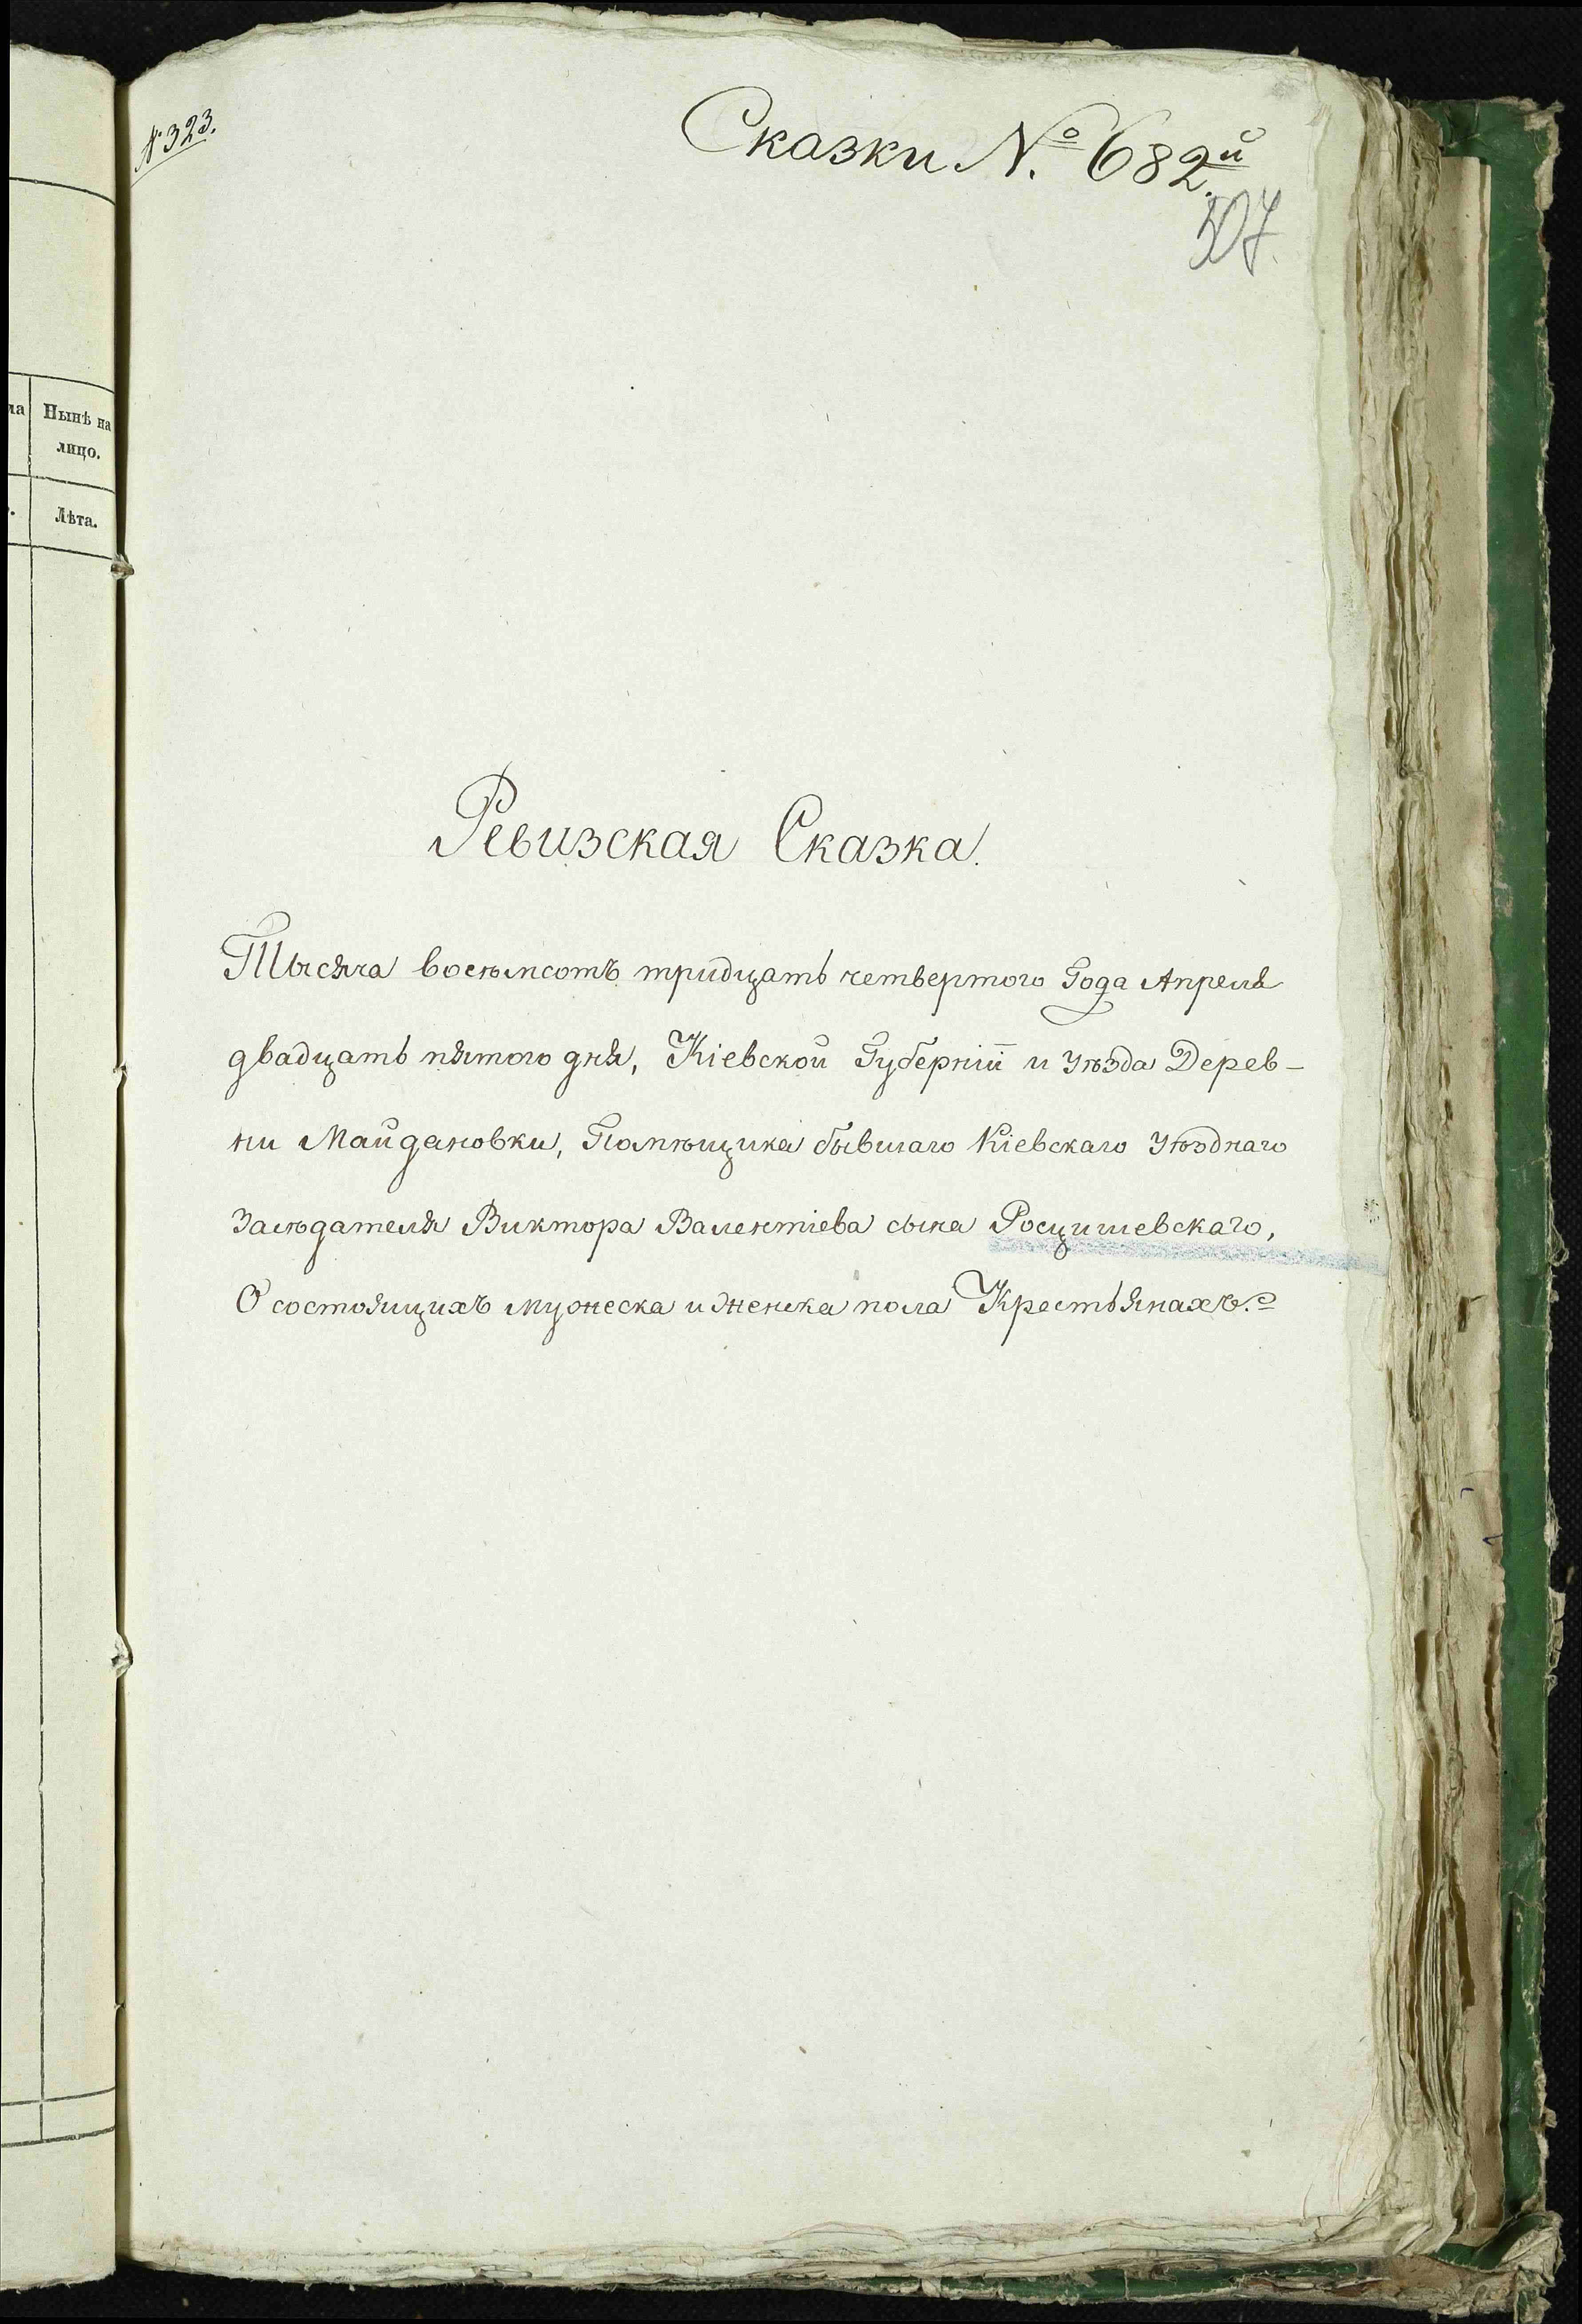 ла
Нынѣ на
лицо.
Лѣта.
№ 323.
Сказки №. 682й.
507.
Ревизская Сказка.
Тысяча восемьсотъ тридцать четвертого Года Апреля
двадцать пятого дня, Кіевской Губерніи и Уѣзда Дерев-
ни Майдановки, Помѣщика бывшаго Кіевскаго Уѣзднаго
Засѣдателя Виктора Валентіева сына Росцишевскаго,
О состоящихъ мужеска и женска пола Крестьянахъ.